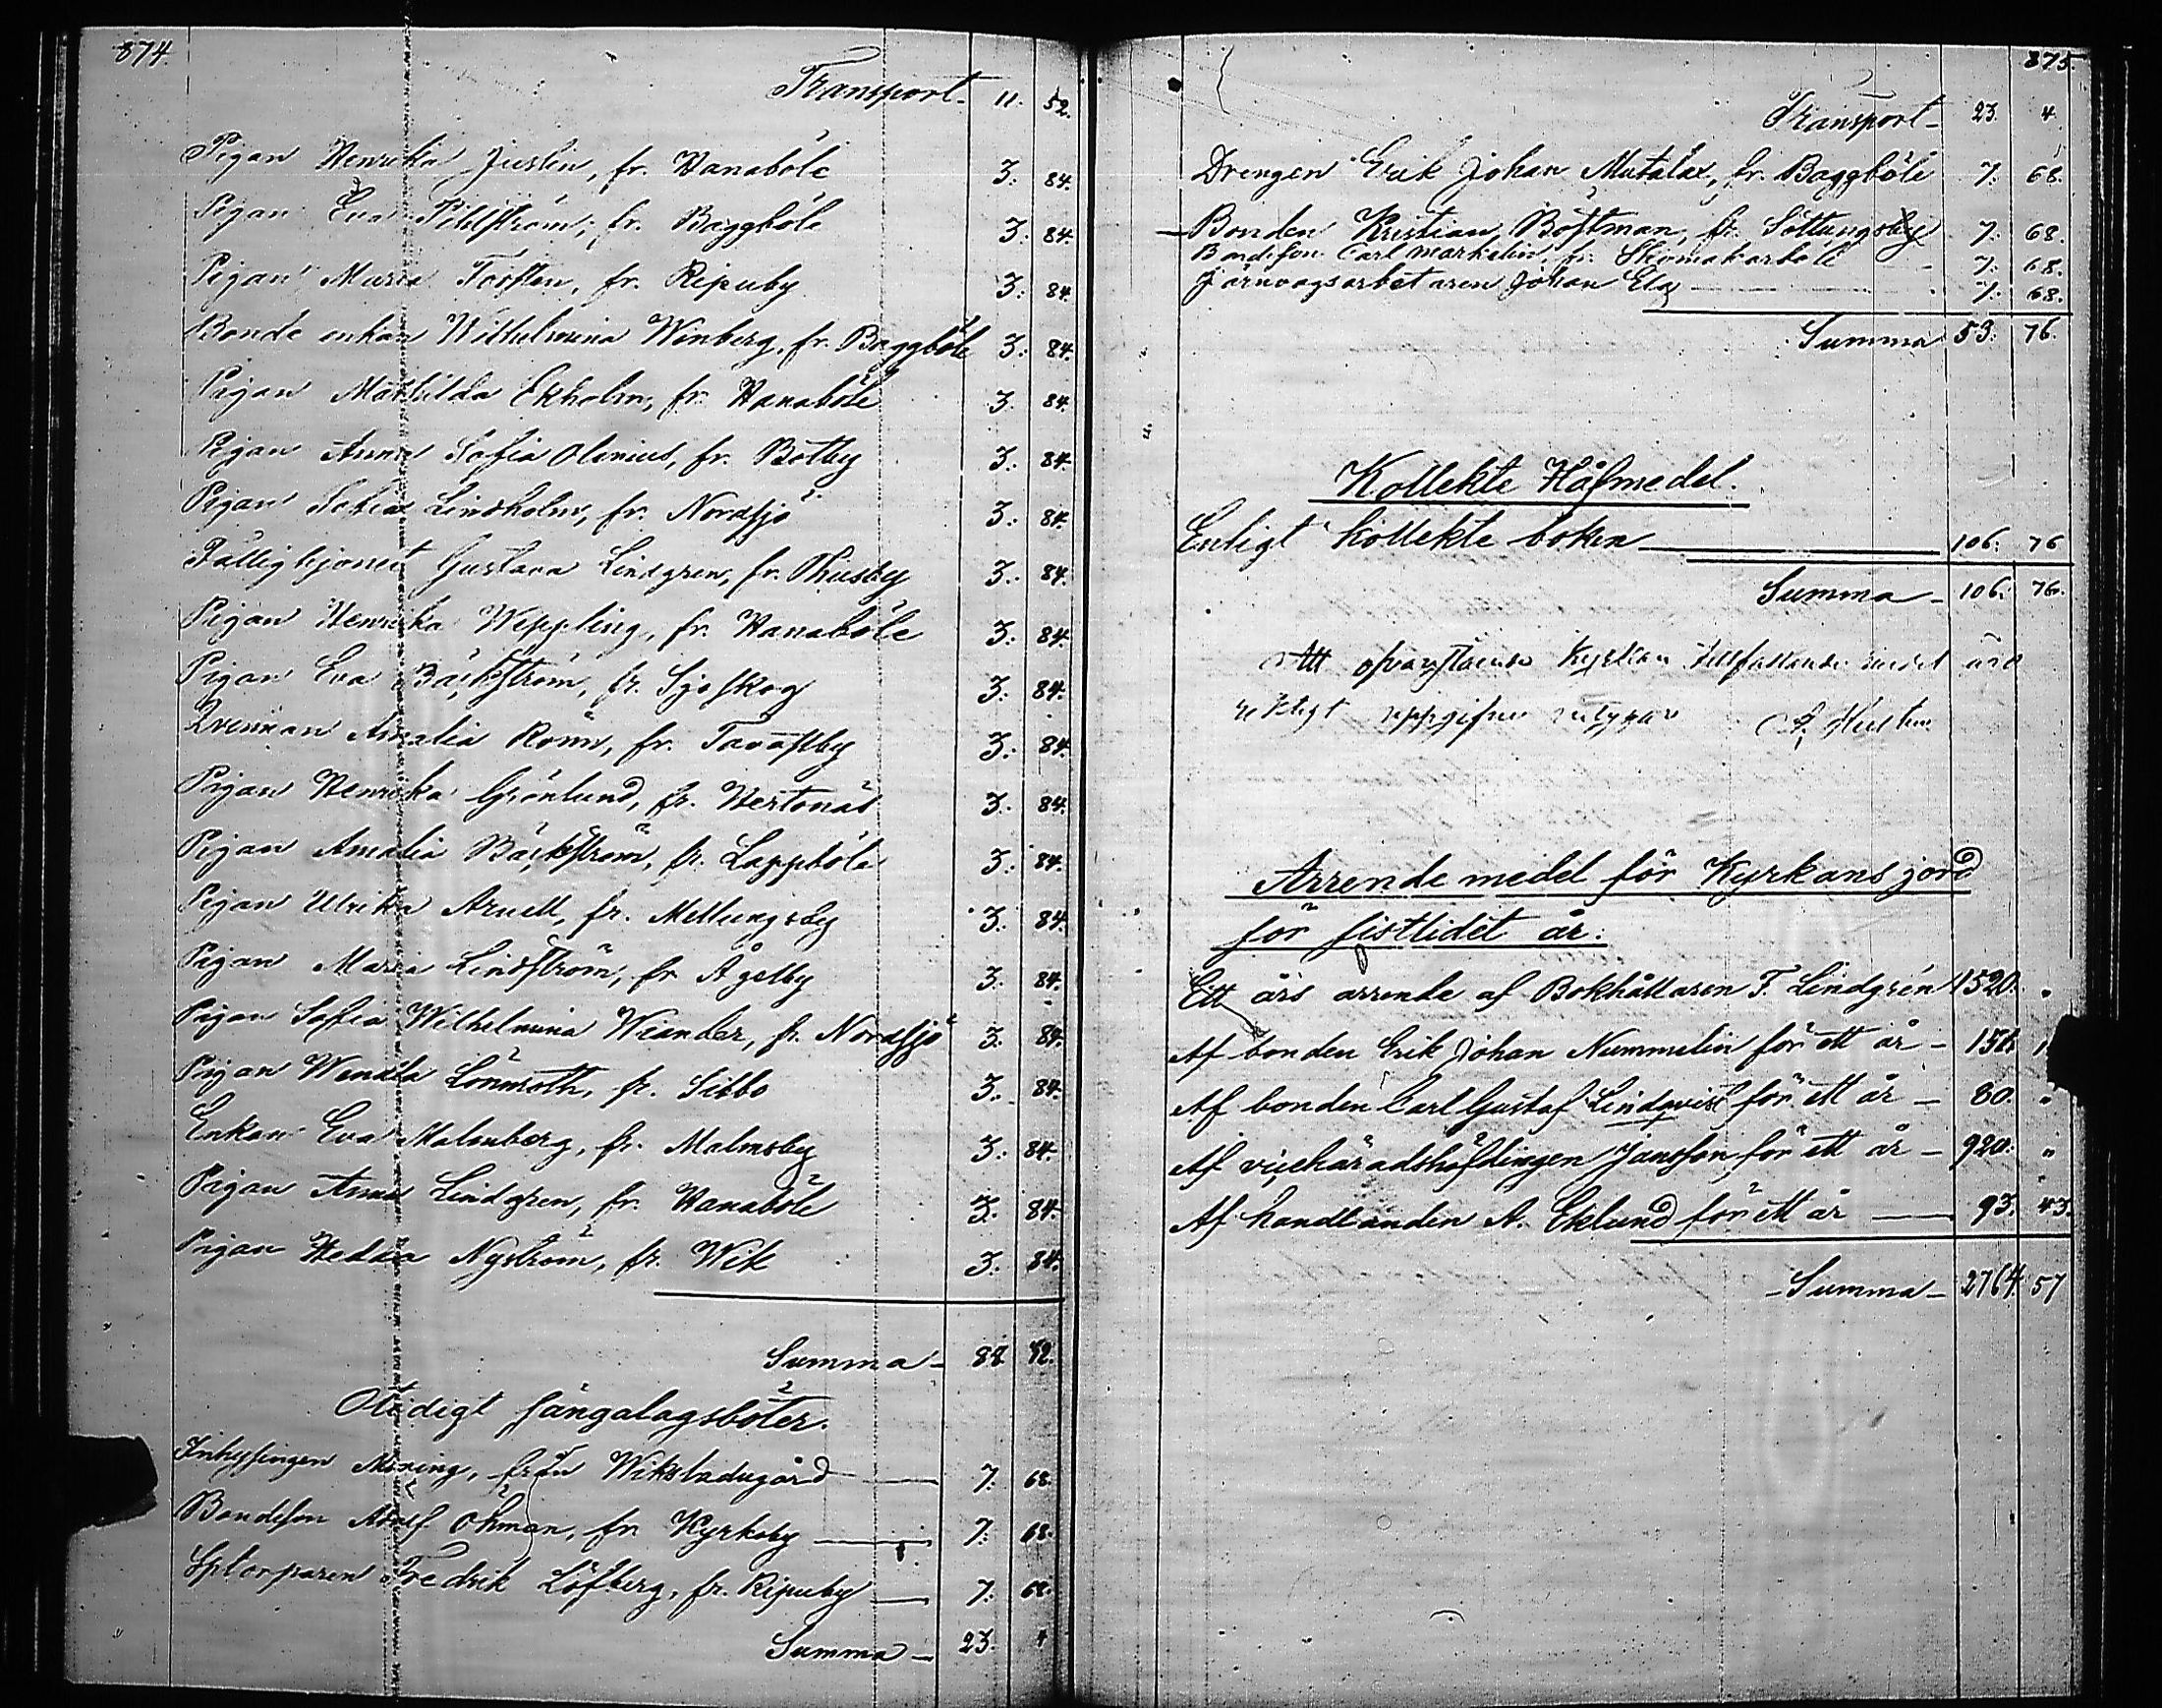 874.
Transport 11. 52.
Pigan Henrika Juslin, fr. Hanaböle 3. 84.
Pigan Eva Pihlström, fr. Baggböle 3. 84.
Pigan Maria Torsten, fr. Ripuby 3. 84.
Bonde enkan Wilhelmina Winberg, fr. Baggböle 3. 84.
Pigan Mathilda Ekholm, fr. Hanaböle 3. 84.
Pigan Anna Sofia Olenius, fr. Botby 3. 84.
Pigan Sofia Lindholm, fr. Nordsjö 3. 84.
Fattighjonet Gustava Lindgren, fr. Thusby 3. 84.
Pigan Henrika Weppling, fr. Hanaböle 3. 84.
Pigan Eva Bäckström, fr. Sjöskog 3. 84.
Qvinnan Amalia Rönn, fr. Tavastby 3. 84.
Pigan Henrika Grönlund, fr. Hertonäs 3. 84.
Pigan Amalia Bäckström, fr. Lappböle 3. 84.
Pigan Ulrika Aruell, fr. Mellungsby 3. 84.
Pigan Maria Lindström, fr. Ågelby 3. 84.
Pigan Sofia Wilhelmina Weander, fr. Nordsjö 3. 84.
Pigan Wendla Lönnroth, fr. Sibbo 3. 84.
Enkan Eva Malmberg, fr. Malmsby 3. 84.
Pigan Anna Lindgren, fr. Hanaböle 3. 84.
Pigan Hedda Nyström, fr. Wik 3. 84.
Summa 88. 32.
Otidigt sängalagsböter.
Inhysingen Moring, från Wiksladugård 7. 68.
Bondeson Adolf Öhman, fr. Kyrkoby 7. 68.
Sptorparen Fredrik Löfberg, fr. Ripuby 7. 68.
Summa 23. 4
875.
Transport 23. 4.
Drengen Erik Johan Mutalax, fr. Baggböle 7. 68.
Bonden Kristian Böstman, fr. Sottungsby 7. 68.
Bondeson Carl Markelin, fr. Skomakarböle 7. 68.
Järnvägsarbetaren Johan Elg 7. 68.
Summa 53. 76.
Kollekte Håfmedel.
Enligt kollekte boken 106. 76
Summa 106. 76.
Att ofvanstående Kyrkan tillfallande medel äro
riktigt uppgifne intygar
Arrende medel för Kyrkans jord
för sistlidet år.
Ett års arrende af Bokhållaren F. Lindgrén 1520. "
Af bonden Erik Johan Nummelin för ett år 151.
Af bonden Carl Gustaf Lindqvist för ett år 80. "
Af vicehäradshöfdingen Jansson för ett år 920. "
Af handlanden A. Eklund för ett år 93. 43.
Summa 2764. 57